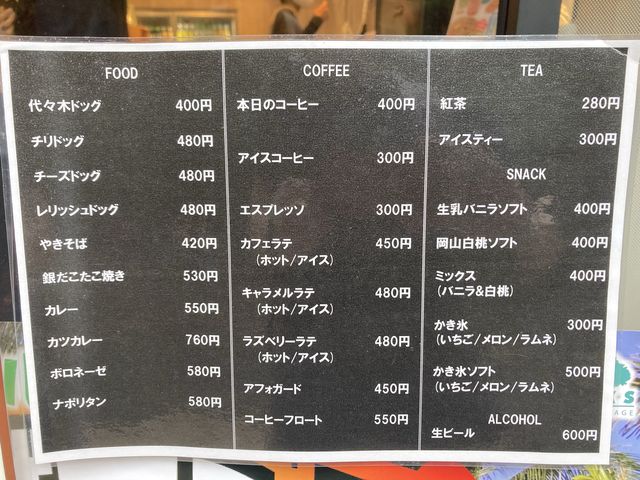 FOOD
代々木ドッグ 400円
チリドッグ 480円
チーズドッグ 480円
レリッシュドッグ 480円
やきそば 420円
銀だこたこ焼き 530円
カレー 550円
カツカレー 760円
ボロネーゼ 580円
ナポリタン 580円
COFFEE
本日のコーヒー 400円
アイスコーヒー 300円
エスプレッソ 300円
カフェラテ 450円
(ホット/アイス)
キャラメルラテ 480円
(ホット/アイス)
ラズベリーラテ 480円
(ホット/アイス)
アフォガード 450円
コーヒーフロート 550円
TEA
紅茶 280円
アイスティー 300円
SNACK
生乳バニラソフト 400円
岡山白桃ソフト 400円
ミックス 400円
(バニラ&白桃)
かき氷 300円
(いちご/メロン/ラムネ)
かき氷ソフト 500円
(いちご/メロン/ラムネ)
ALCOHOL
生ビール 600円